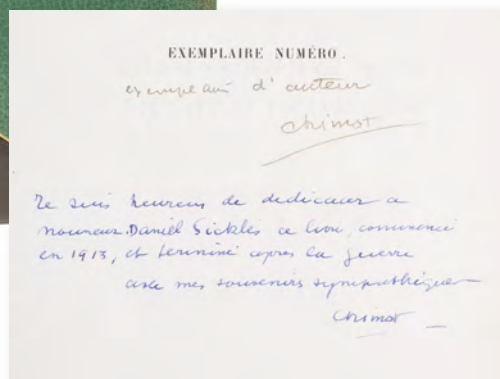 EXEMPLAIRE NUMÉRO.
exemplaire d'auteur
Chimot
Je suis heureux de dedicacer a
monsieur Daniel Sickles ce livre, commencé
en 1913, et terminé apres la guerre
avec mes souvenirs sympathiques
Chimot